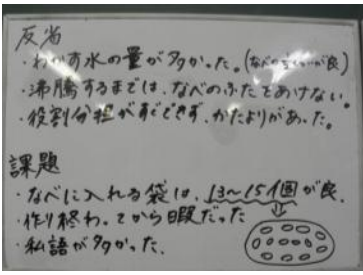 反省
・わかす水の量が多かった。(なべの
・沸騰するまでは、なべのふたをあけない。
・役割分担がすぐできず、かたよりがあった。
課題
・なべに入れる袋は、13〜15個が良
・作り終わってから暇だった
・私語が多かった.